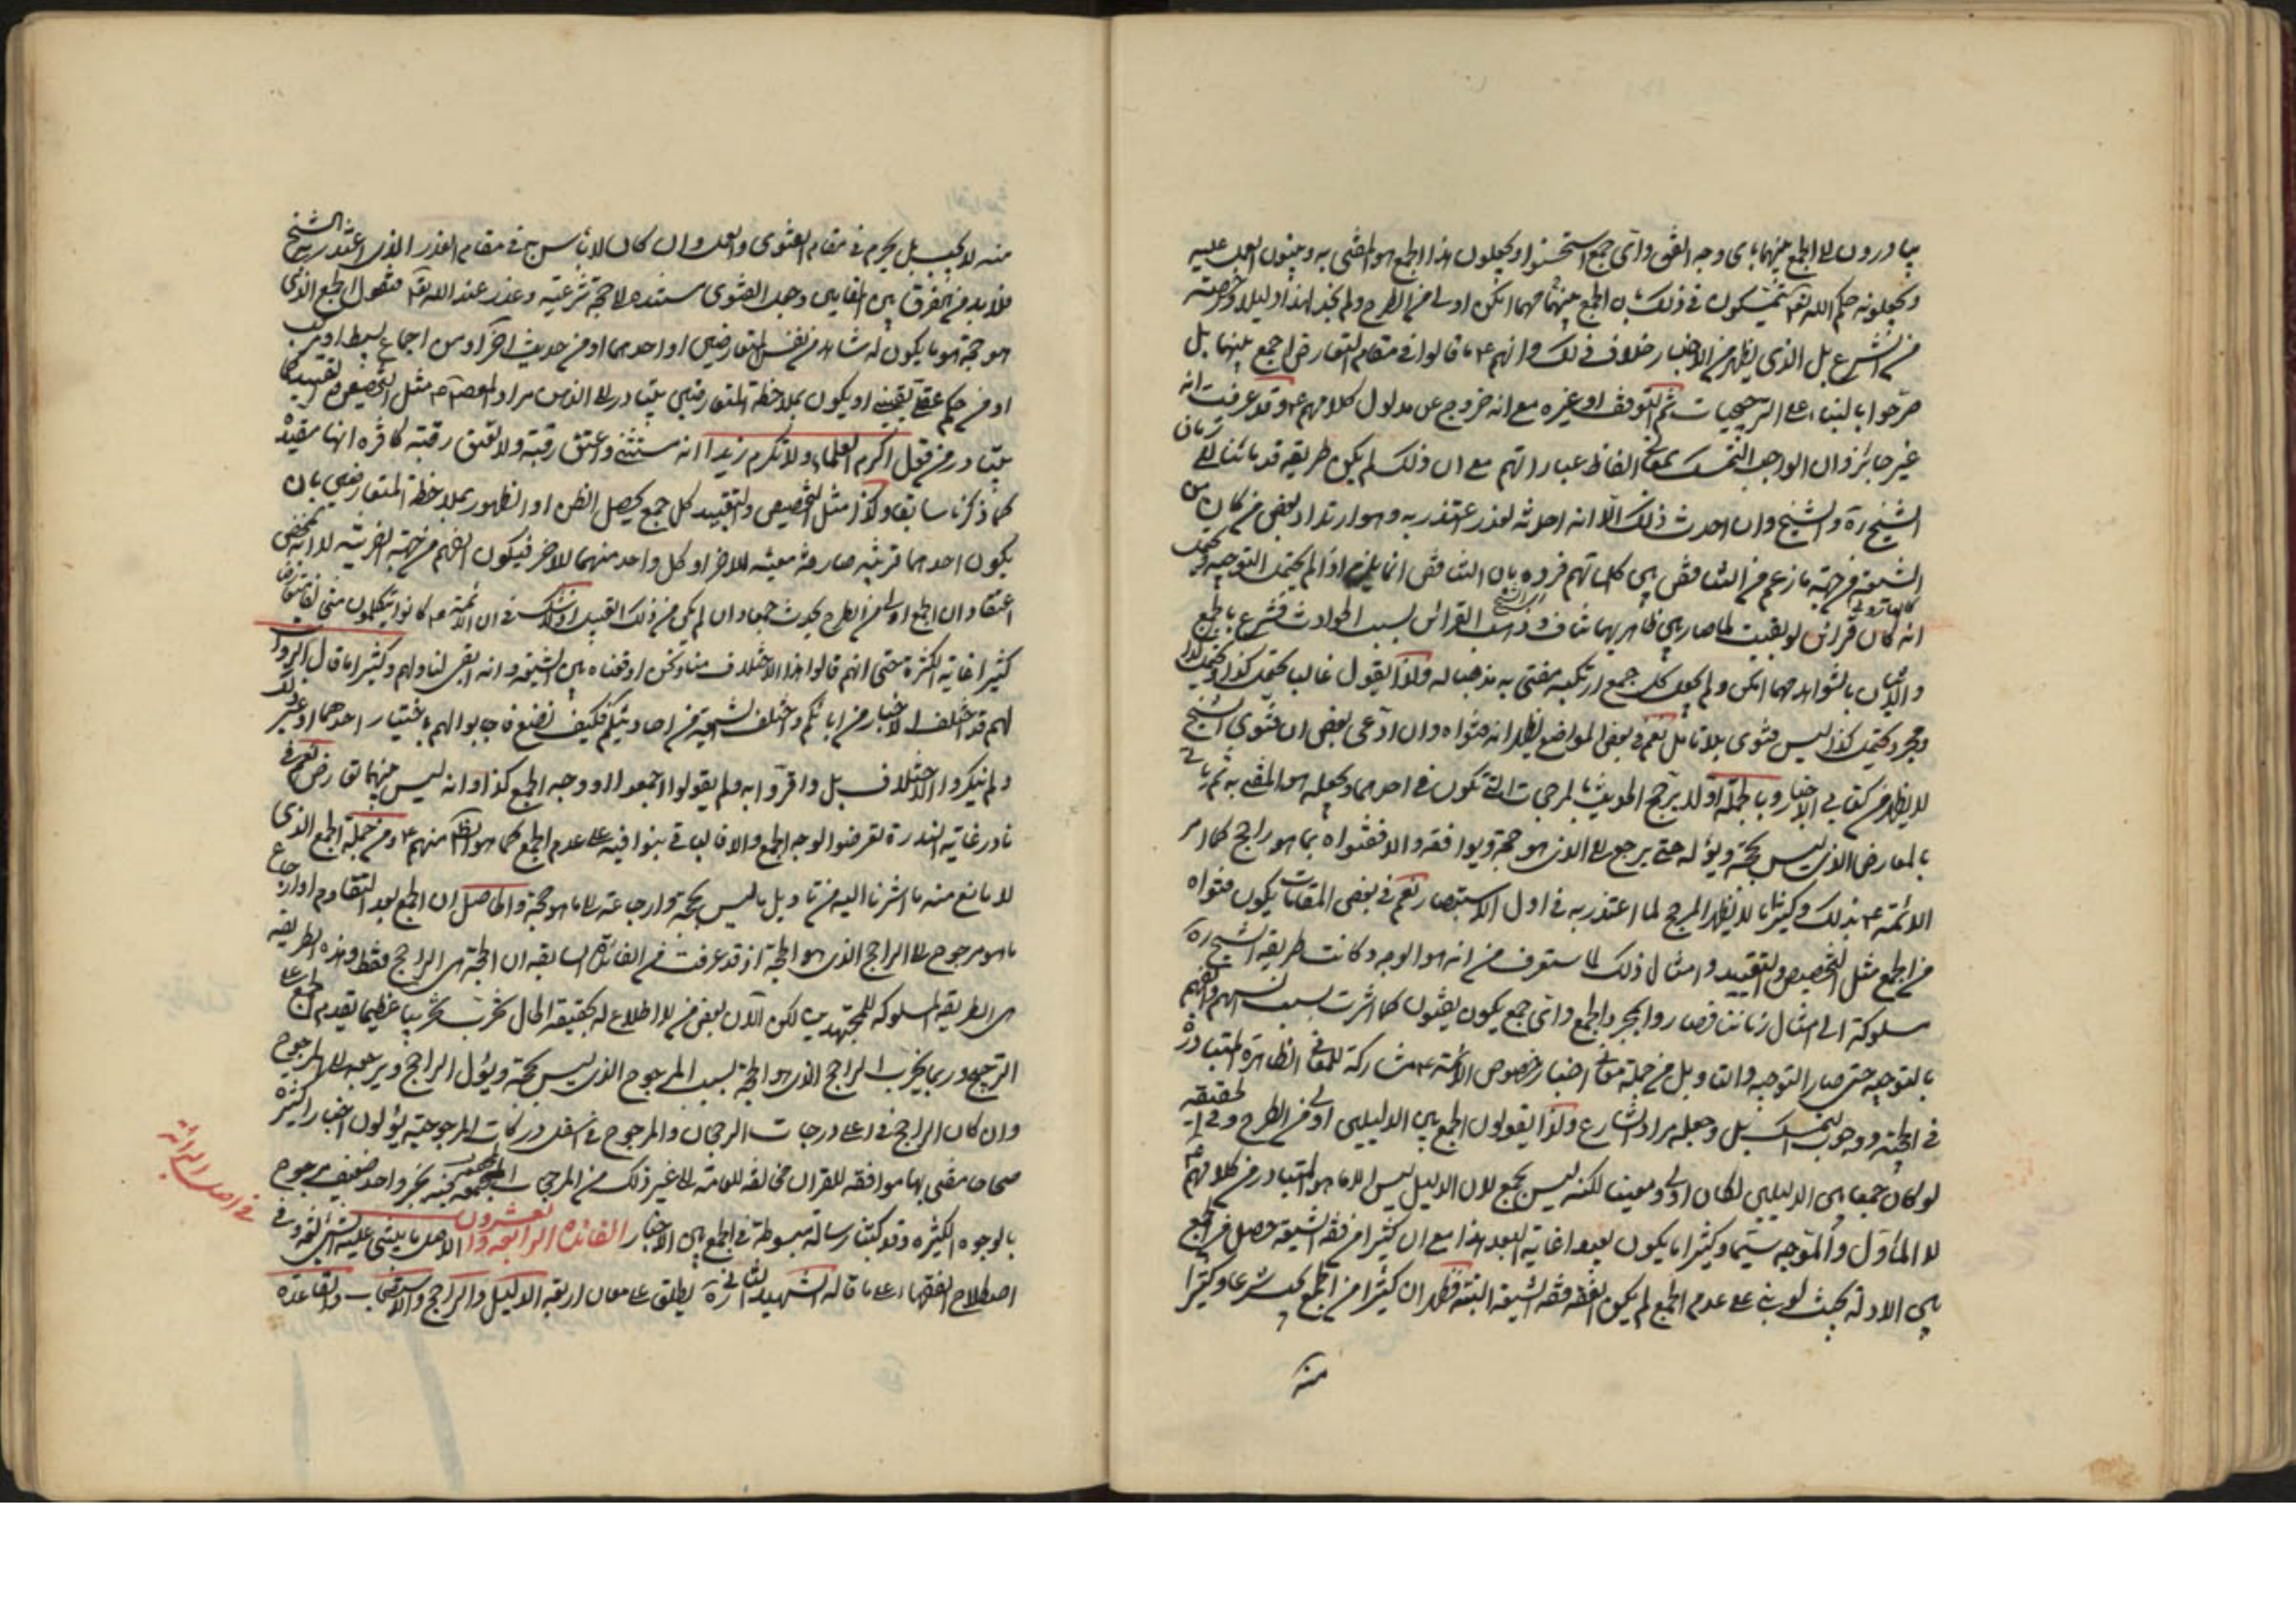 يبادرون الى الجمع بينهما باى وجه اتفق واى جمع استحسنوا ويجعلون هذا الجمع هو المفتى به ويبنون العمل عليه
ويجعلونه حكم الله تعالى متمسكون فى ذلك بان الجمع بينهما مهما امكن اولى من الطرح ولم نجد لهذا دليلا ورخصة
من الشرع بل الذى يظهر من الاخبار خلاف ذلك وانهم ع ما قالوا فى مقام التعارض اجمع بينهما بل
صرحوا بالبناء على الترجيحات ثم التوقف او غيره مع انه خروج عن مدلول كلامهم ع وقد عرفت انه
غير جائز وان الواجب التمسك بمعانى الفاظ عباراتهم مع ان ذلك لم يكن طريقة قدمائنا الى زمان
الشيخ ره والشيخ وان احدث ذلك الا انه احدثه لعذر اعتذر به وهو ارتداد بعض من كان من
الشيعة من جهة ما زعم من التناقض بين كلماتهم فرده بان التناقض انما يلزم اذا لم يحتمل التوجيه
انه كان قرائن لو بقيت لما صار بين ظاهريهما تناف وذهب القرائن بسبب الحوادث فشرع بالجمع
والاتيان بالشواهد مهما امكن ولم يجعل كل جمع ارتكبه مفتى به مذهبا له ولذا يقول غالبا يحتمل كذا ويحتمل كذا
ومجرد يحتمل كذا ليس فتوى بلا تامل نعم فى بعض المواضع يظهر انه فتواه وان ادعى بعض ان فتوى الشيخ
لا يظهر من كتابى الاخبار وبالجملة اولا يرجح الحديث بالمرجحات التى تكون فى احدهما ويجعله هو المفتى به ثم ياتى
بالمعارض الذى ليس بحجة ويؤله حتى يرجع الى الذى هو حجة ويوافقه والا ففتواه بما هو راجح كما امر
الائمة ع بذلك وكثيرا ما لا يظهر المرجح لما اعتذر به فى اول الاستبصار نعم فى بعض المقامات يكون فتواه
من الجمع مثل التخصيص والتقييد وامثال ذلك لما ستعرف من انه هو الوجه وكانت طريقة الشيخ ره
مسلوكة الى امثال زماننا فصاروا بمجرد الجمع واى جمع يكون يفتون كما اشرت بسبب انسهم والفهم
بالتوجيه حتى صار التوجيه والتاويل من جملة معانى اخبار خصوص الائمة ع مشاركة للمعانى الظاهرة المتبادرة
فى الحجية ووجوب التمسك بل وجعله مراد الشارع ولذا يقولون الجمع بين الدليلين اولى من الطرح وفى الحقيقة
لو كان جمعا بين الدليلين لكان اولى ومعينا لكنه ليس بجمع لان الدليل ليس الا ما هو المتبادر من كلامهم ع
لا المأول والموجه سيما وكثيرا ما يكون بعيدا غاية البعد هذا مع ان كثيرا من فقه الشيعة حصل من الجمع
بين الادلة بحيث لو بنى على عدم الجمع لم يكن الفقه فقه الشيعة البتة فظهر ان كثيرا من الجمع يجب شرعا وكثيرا
منه
منه لا يجب بل يحرم فى مقام الفتوى والعمل وان كان لا باس به فى مقام العذر الذى اعتذر به الشيخ
فلا بد من الفرق بين المقامين وجعل الفتوى مستندة الى حجة شرعية وعذر عند الله تعالى فنقول الجمع الذى
هو حجة هو ما يكون له شاهد من نفس المتعارضين او احدهما او من حديث اخر او من اجماع بسيط او مركب
او من حكم عقلى يقينى او يكون بملاحظة المتعارضين يتبادر الى الذهن مراد المعصوم ع مثل التخصيص والتقييد كما
يتبادر من قول اكرم العلماء ولا تكرم زيدا انه مستثنى واعتق رقبة ولا تعتق رقبة كافرة انها مقيدة
كما ذكرنا سابقا وكذا مثل التخصيص والتقييد كل جمع يحصل الظن او الظهور بملاحظة المتعارضين بان
يكون احدهما قرينة صارفة معينة للاخر او كل واحد منهما للاخر فيكون الفهم من جهة القرينة لا انه بمحض
اعتقاد ان الجمع اولى من الطرح يحدث جمعا وان لم يكن من ذلك القبيل اذ لا شك فى ان الائمة ع كانوا يتكلمون متناقضا
كثيرا غاية الكثرة حتى انهم قالوا هذا الاختلاف منا ونحن اوقعناه بين الشيعة وانه ابقى لنا ولهم وكثيرا ما قال الرواة
لهم قد اختلف الاخبار من ابائكم واختلف الشيعة من احاديثكم فكيف نصنع فاجابوا لهم باختيار احدهما او غير ذلك
ولم ينكروا الاختلاف بل واقروا به ولم يقولوا اجمعوا او وجه الجمع كذا وانه ليس بينهما تعارض نعم فى
نادر غاية الندرة تعرضوا لوجه الجمع والاغالب بنوا فيه على عدم الجمع كما هو الظاهر منهم ع ومن جملة الجمع الذى
لا مانع منه ما اشرنا اليه من تاويل ما ليس بحجة وارجاعه الى ما هو حجة والحاصل ان الجمع بعد التقاوم او ارجاع
ما هو مرجوح الى الراجح الذى هو الحجة اذ قد عرفت فى الفائدة السابقة ان الحجة هى الراجح فقط وهذه الطريقة
هى الطريقة المسلوكة للمجتهدين لكن الان بعض من لا اطلاع له بحقيقة الحال يخرب تخريبا عظيما يقدم الجمع على
الترجيح وربما يخرب الراجح الذى هو الحجة بسبب المرجوح الذى ليس بحجة ويؤل الراجح ويرجعه الى المرجوح
وان كان الراجح فى اعلى درجات الرجحان والمرجوح فى اسفل دركات المرجوحية يؤلون اخبارا كثيرة
صحاحا مفتى بها موافقة للقران مخالفة للعامة الى غير ذلك من المرجحات المجتمعة بخبر واحد ضعيف مرجوح
بالوجوه الكثيرة وقد كتبنا رسالة مبسوطة فى الجمع بين الاخبار الفائدة الرابعة والعشرون الاصل ما يبتنى عليه الشىء لغة وفى
اصطلاح الفقهاء على ما قاله الشهيد الثانى ره يطلق على معان اربعة الدليل والراجح والاستصحاب والقاعدة
فى اصل البرائة